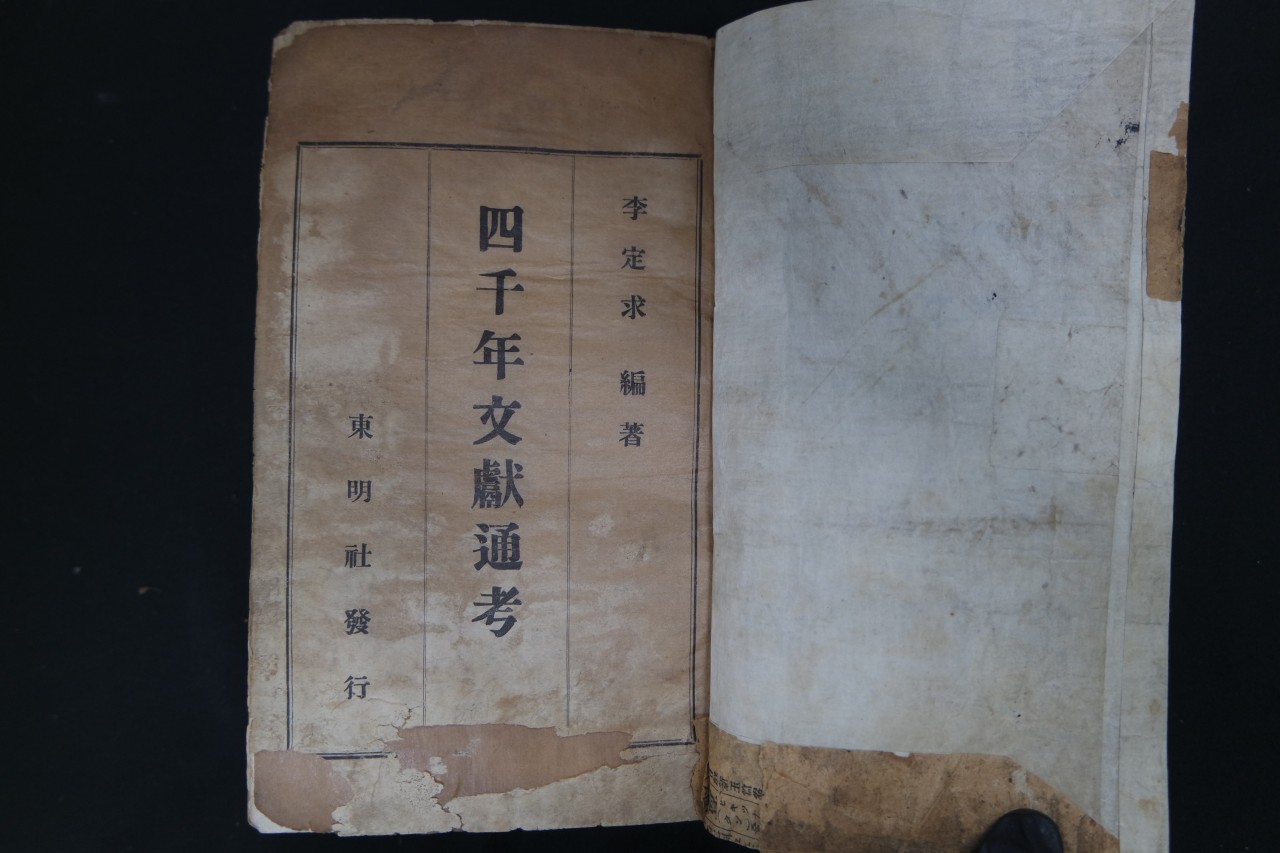 李定求 編著
四千年文獻通考
東明社發行